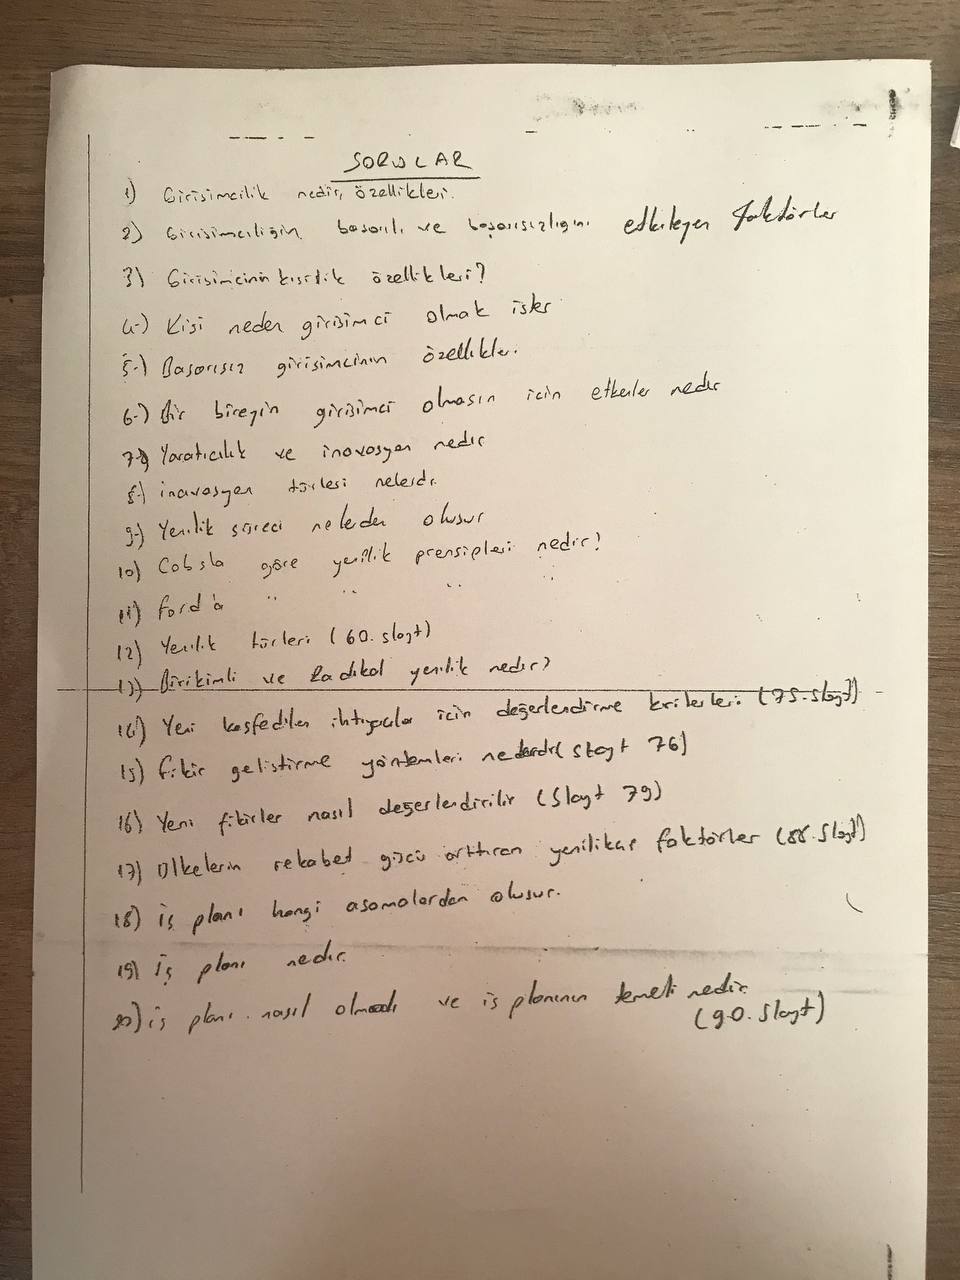 SORULAR
1) Girişimcilik nedir, özellikleri.
2) Girişimciliğin başarılı ve başarısızlığını etkileyen faktörler
3) Girişimcinin kişilik özellikleri?
4-) Kişi neden girişimci olmak ister
5-) Başarısız girişimcinin özellikleri.
6-) Bir bireyin girişimci olmasın için etkenler nedir
7-) Yaratıcılık ve inovasyon nedir
8-) inavasyon türleri nelerdir.
9-) Yenilik süreci nelerden oluşur
10) Cobsla göre yenilik prensipleri nedir?
11) Ford'a " " " "
12) Yenilik türleri (60. slayt)
13) Birikimli ve Radikal yenilik nedir?
14) Yeni keşfedilen ihtiyaçlar için değerlendirme kriterleri (75. slayt)
15) Fikir geliştirme yöntemleri nelerdir (slayt 76)
16) Yeni fikirler nasıl değerlendirilir (Slayt 79)
17) Ülkelerin rekabet gücü arttıran faktörler (88. Slayt)
18) iş planı hangi aşamalardan oluşur.
19) iş planı nedir.
20) iş planı nasıl olmalı ve iş planının temeli nedir.
(90. Slayt)